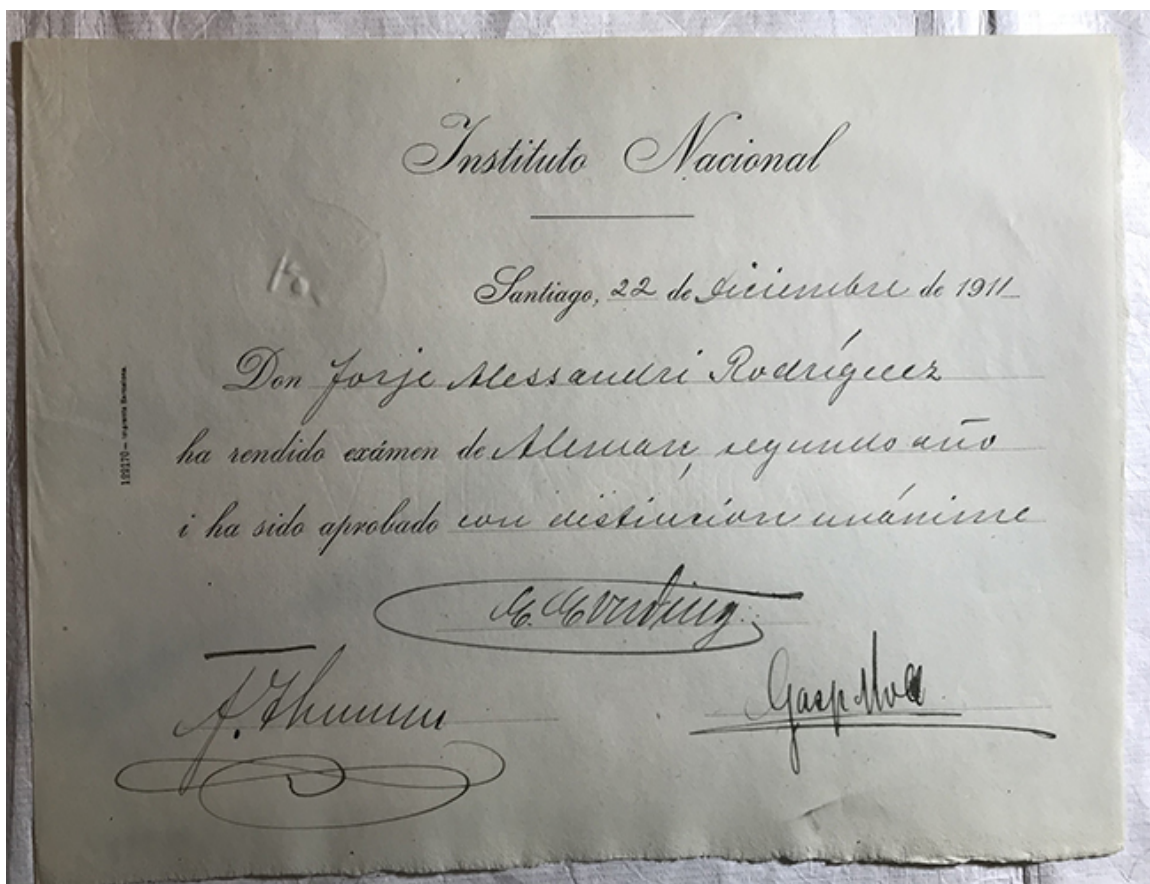 Instituto Nacional
Santiago, 22 de diciembre de 1911
Don Jorje Alessandri Rodríguez
ha rendido exámen de Aleman, segundo año
i ha sido aprobado con distincion unánime
122170 — Imprenta Barcelona.